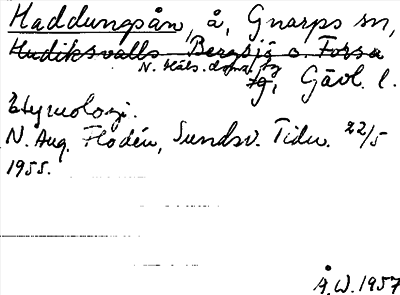 Haddungsån, å, Gnarps sn,
Hudiksvalls Bergsjö o. Forsa
N. Häls. domsaga
tg, Gävl. l.
Etymologi.
N. Aug. Flodén, Sundsv. Tidn. 22/5
1955.
Å.W. 1957